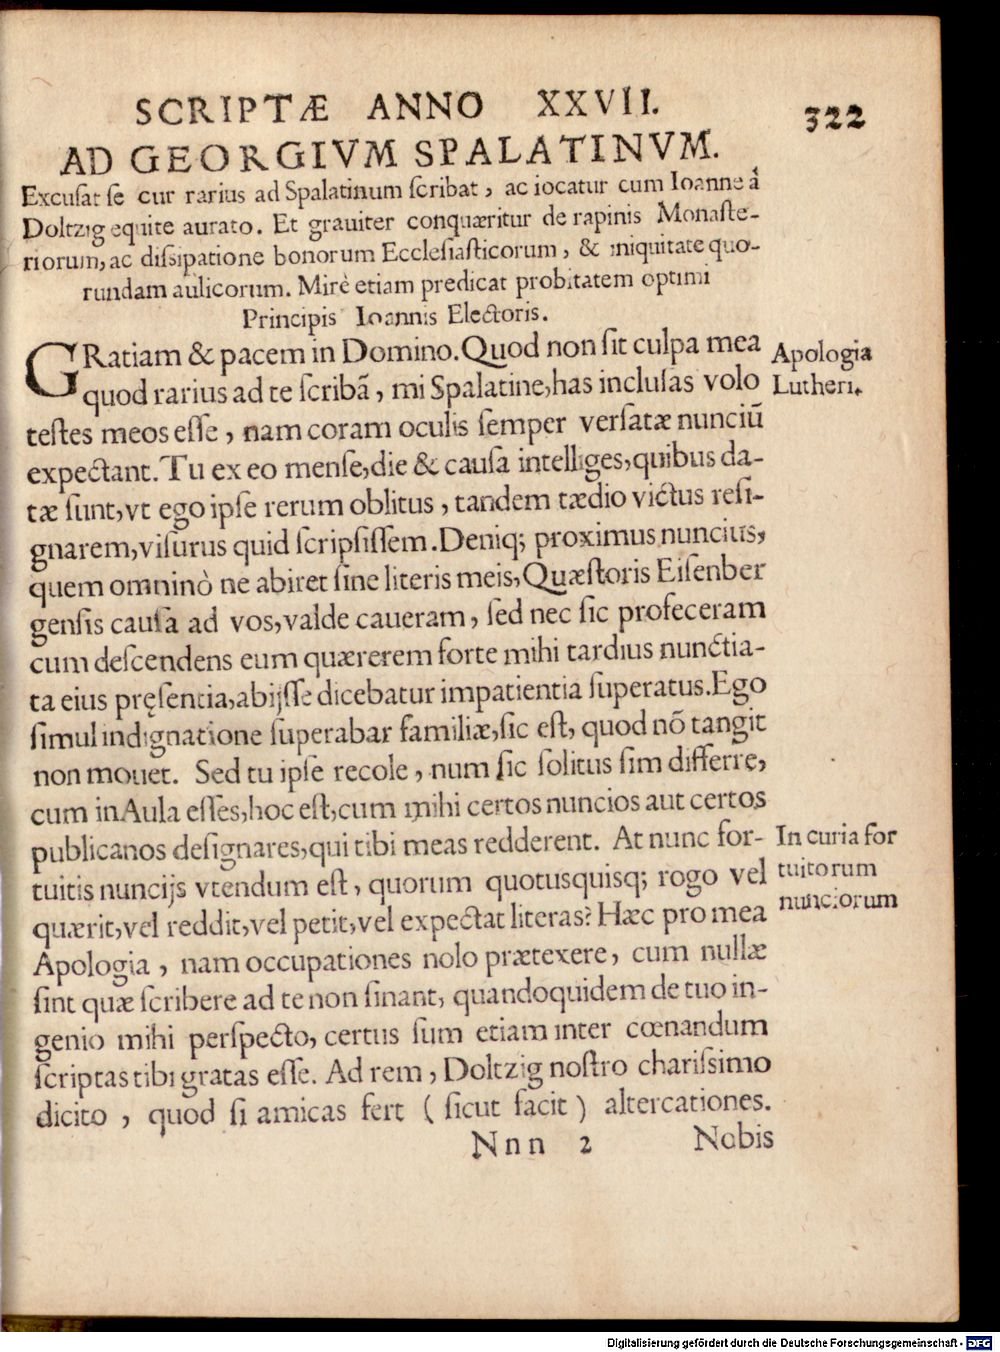 SCRIPTÆ ANNO XXVII.
322
AD GEORGIVM SPALATINVM.
Excuſat ſe cur rarius ad Spalatinum ſcribat, ac iocatur cum Ioanne à
Doltzig equite aurato. Et grauiter conquæritur de rapinis Monaſte-
riorum, ac diſsipatione bonorum Eccleſiaſticorum, & iniquitate quo-
rundam aulicorum. Mirè etiam predicat probitatem optimi
Principis Ioannis Electoris.
GRatiam & pacem in Domino. Quod non ſit culpa mea
quod rarius ad te ſcribã, mi Spalatine, has incluſas volo
teſtes meos eſſe, nam coram oculis ſemper verſatæ nunciũ
expectant. Tu ex eo menſe, die & cauſa intelliges, quibus da-
tæ ſunt, vt ego ipſe rerum oblitus, tandem tædio victus reſi-
gnarem, viſurus quid ſcripſiſſem. Deniq; proximus nuncius,
quem omninò ne abiret ſine literis meis, Quæſtoris Eiſenber
genſis cauſa ad vos, valde caueram, ſed nec ſic profeceram
cum deſcendens eum quærerem forte mihi tardius nunctia-
ta eius pręſentia, abijſſe dicebatur impatientia ſuperatus. Ego
ſimul indignatione ſuperabar familiæ, ſic eſt, quod nõ tangit
non mouet. Sed tu ipſe recole, num ſic ſolitus ſim differre,
cum in Aula eſſes, hoc eſt, cum mihi certos nuncios aut certos
publicanos deſignares, qui tibi meas redderent. At nunc for-
tuitis nuncijs vtendum eſt, quorum quotusquisq; rogo vel
quærit, vel reddit, vel petit, vel expectat literas? Hæc pro mea
Apologia, nam occupationes nolo prætexere, cum nullæ
ſint quæ ſcribere ad te non ſinant, quandoquidem de tuo in-
genio mihi perſpecto, certus ſum etiam inter cœnandum
ſcriptas tibi gratas eſſe. Ad rem, Doltzig noſtro chariſsimo
dicito, quod ſi amicas fert (ſicut facit) altercationes.
Nnn 2 Nobis
Apologia
Lutheri.
In curia for
tuitorum
nunciorum
Digitalisierung gefördert durch die Deutsche Forschungsgemeinschaft - DFG